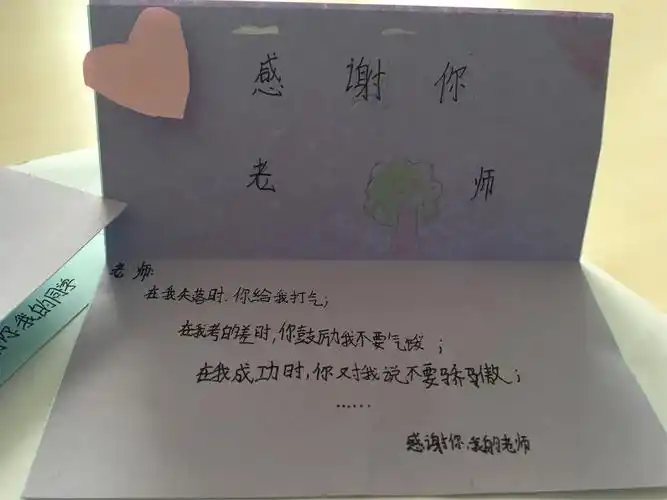 感谢你
老师
老师:
在我失落时.你给我打气;
在我考的差时,你鼓励我不要气馁;
在我成功时,你对我说不要骄傲;
......
感谢你.我的老师
你我的同学